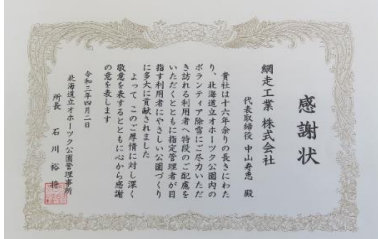 感謝状
網走工業 株式会社
代表取締役 中山寿恵 殿
貴社は十六年余りの長きにわた
り、北海道立オホーツク公園内の
ボランティア除雪にご尽力いただ
き訪れる利用者へ特段のご配慮を
いただくとともに指定管理者が目
指す利用者にやさしい公園づくり
に多大に貢献されました
よって このご厚情に対し深く
敬意を表するとともに心から感謝
の意を表します
令和三年四月二日
北海道立オホーツク公園管理事務所
所長 石川裕将